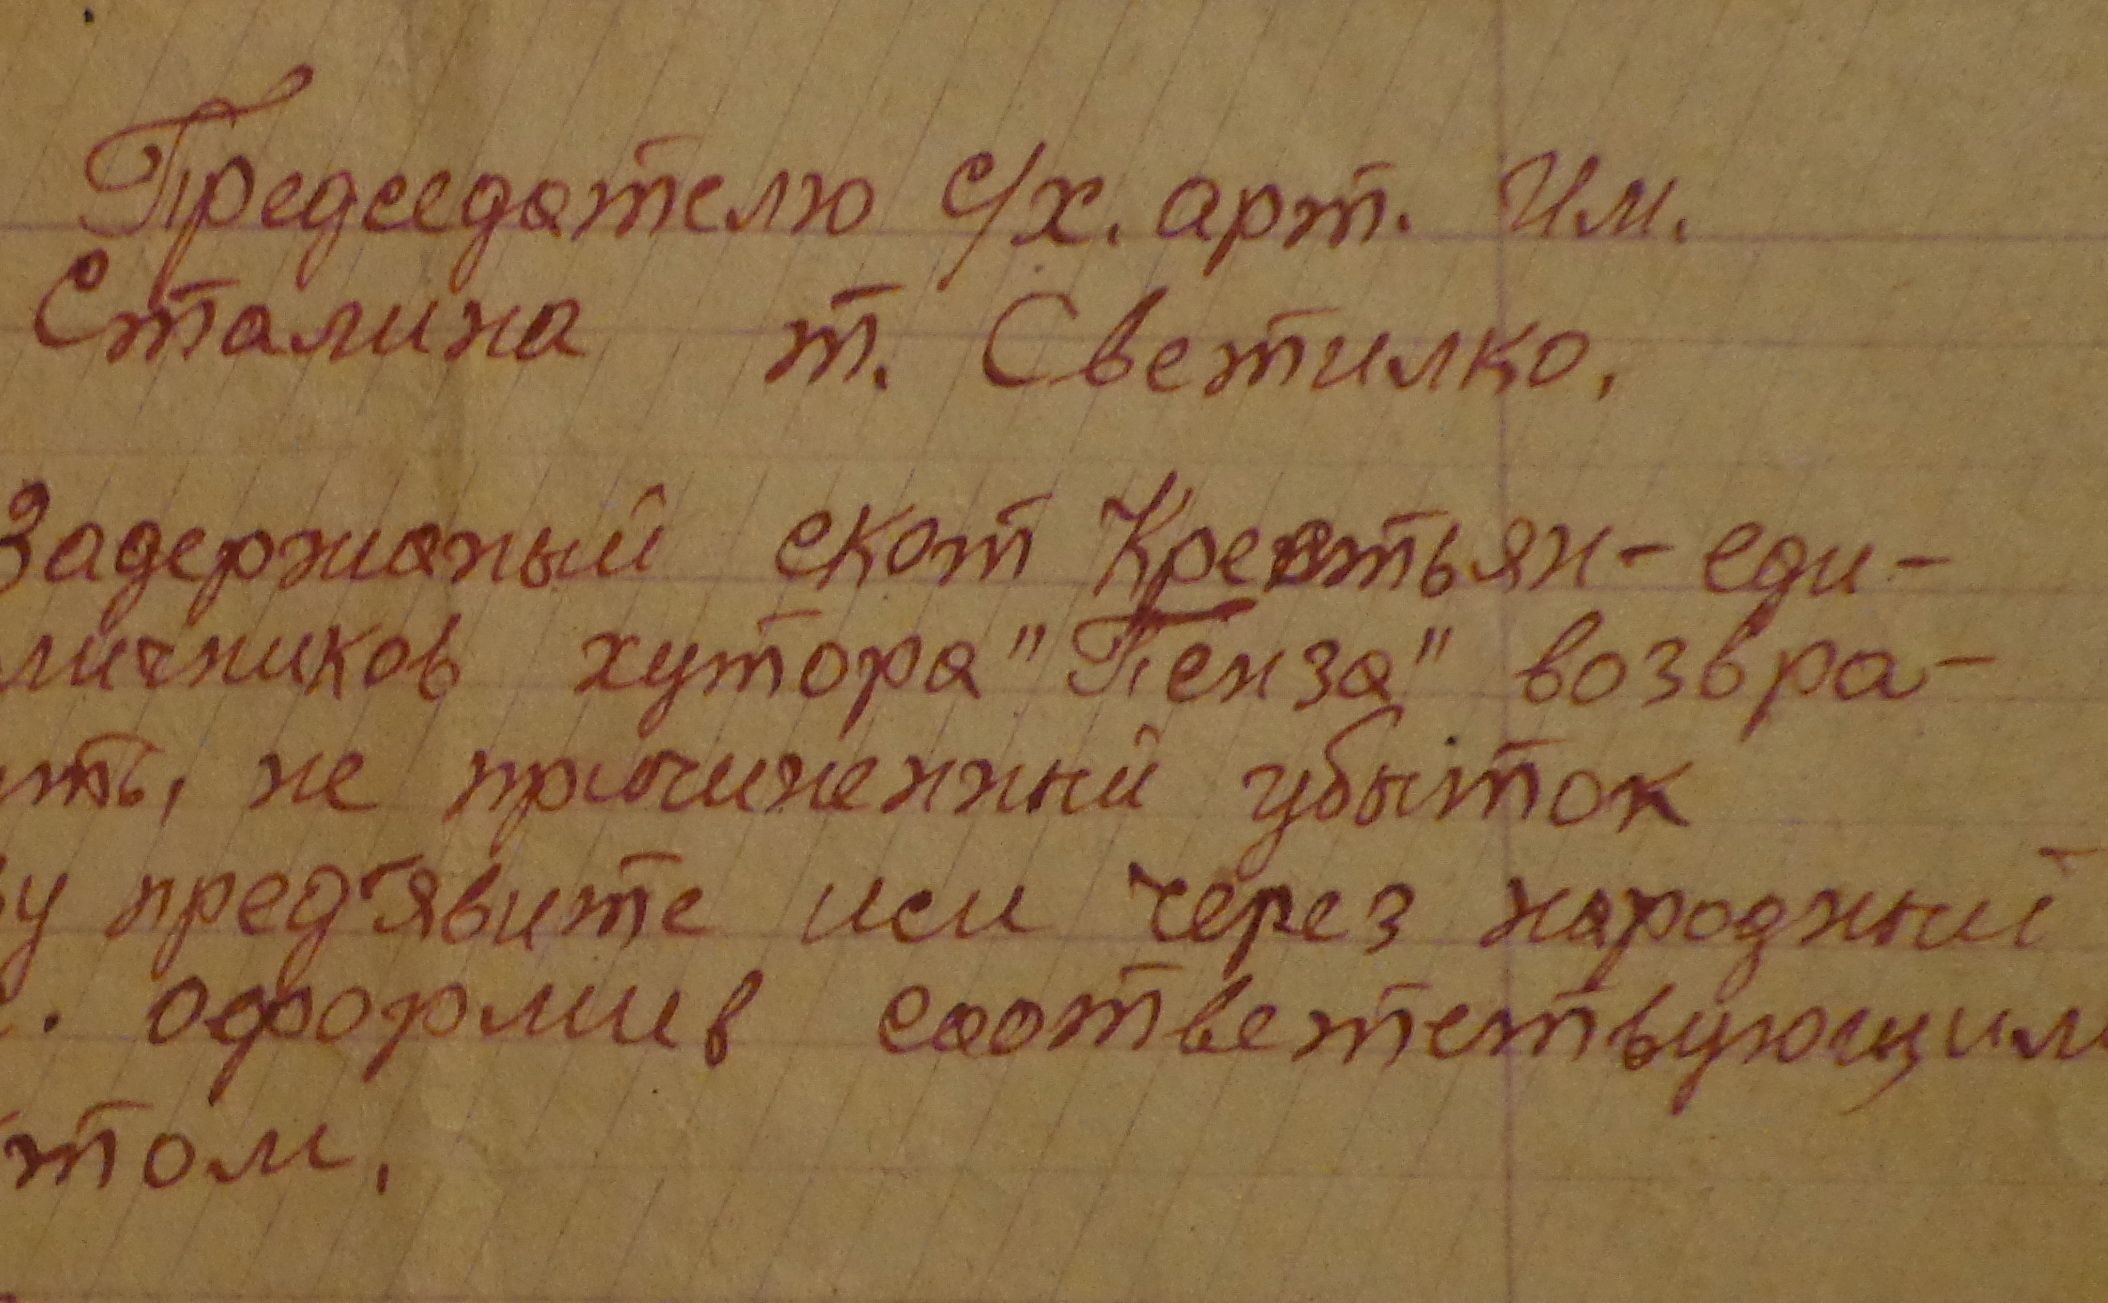 Председателю с/х. арт. Им.
Сталина т. Светилко.
Задержаный скот Крестьян-еди-
личников хутора "Пенза" возвра-
ить, не причиненный убыток
ву пред'явите иси через народный
оформив соответствующим
ктом.